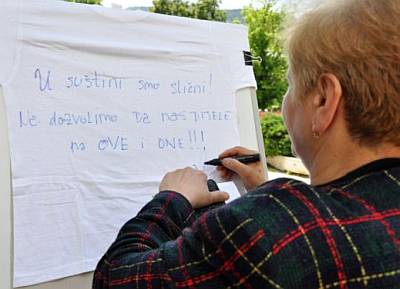 U suštini smo slični!
Ne dozvolimo da nas dijele
na OVE i ONE!!!